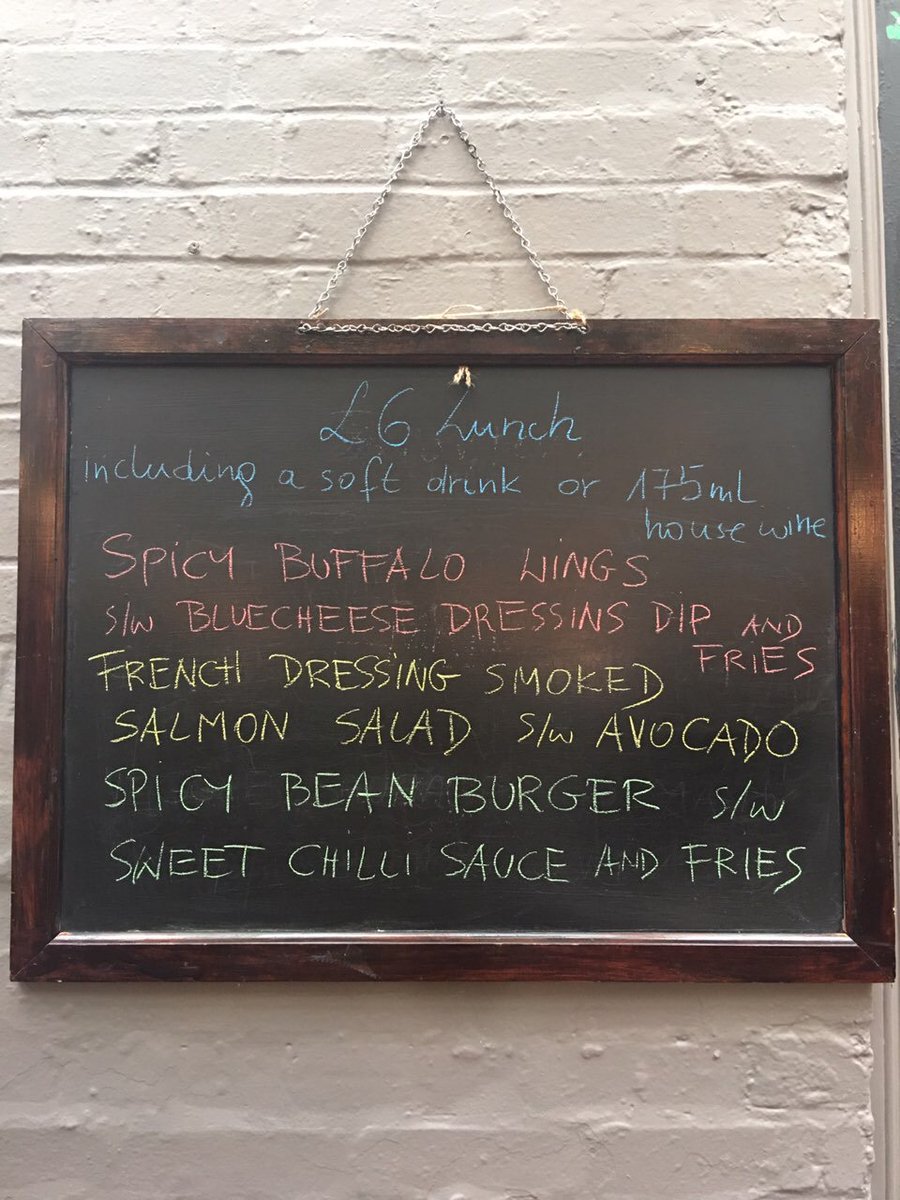 £6 Lunch
including a soft drink or 175ml
house wine
SPICY BUFFALO WINGS
S/W BLUECHEESE DRESSINS DIP AND
FRIES
FRENCH DRESSING SMOKED
SALMON SALAD S/W AVOCADO
SPICY BEAN BURGER S/W
SWEET CHILLI SAUCE AND FRIES